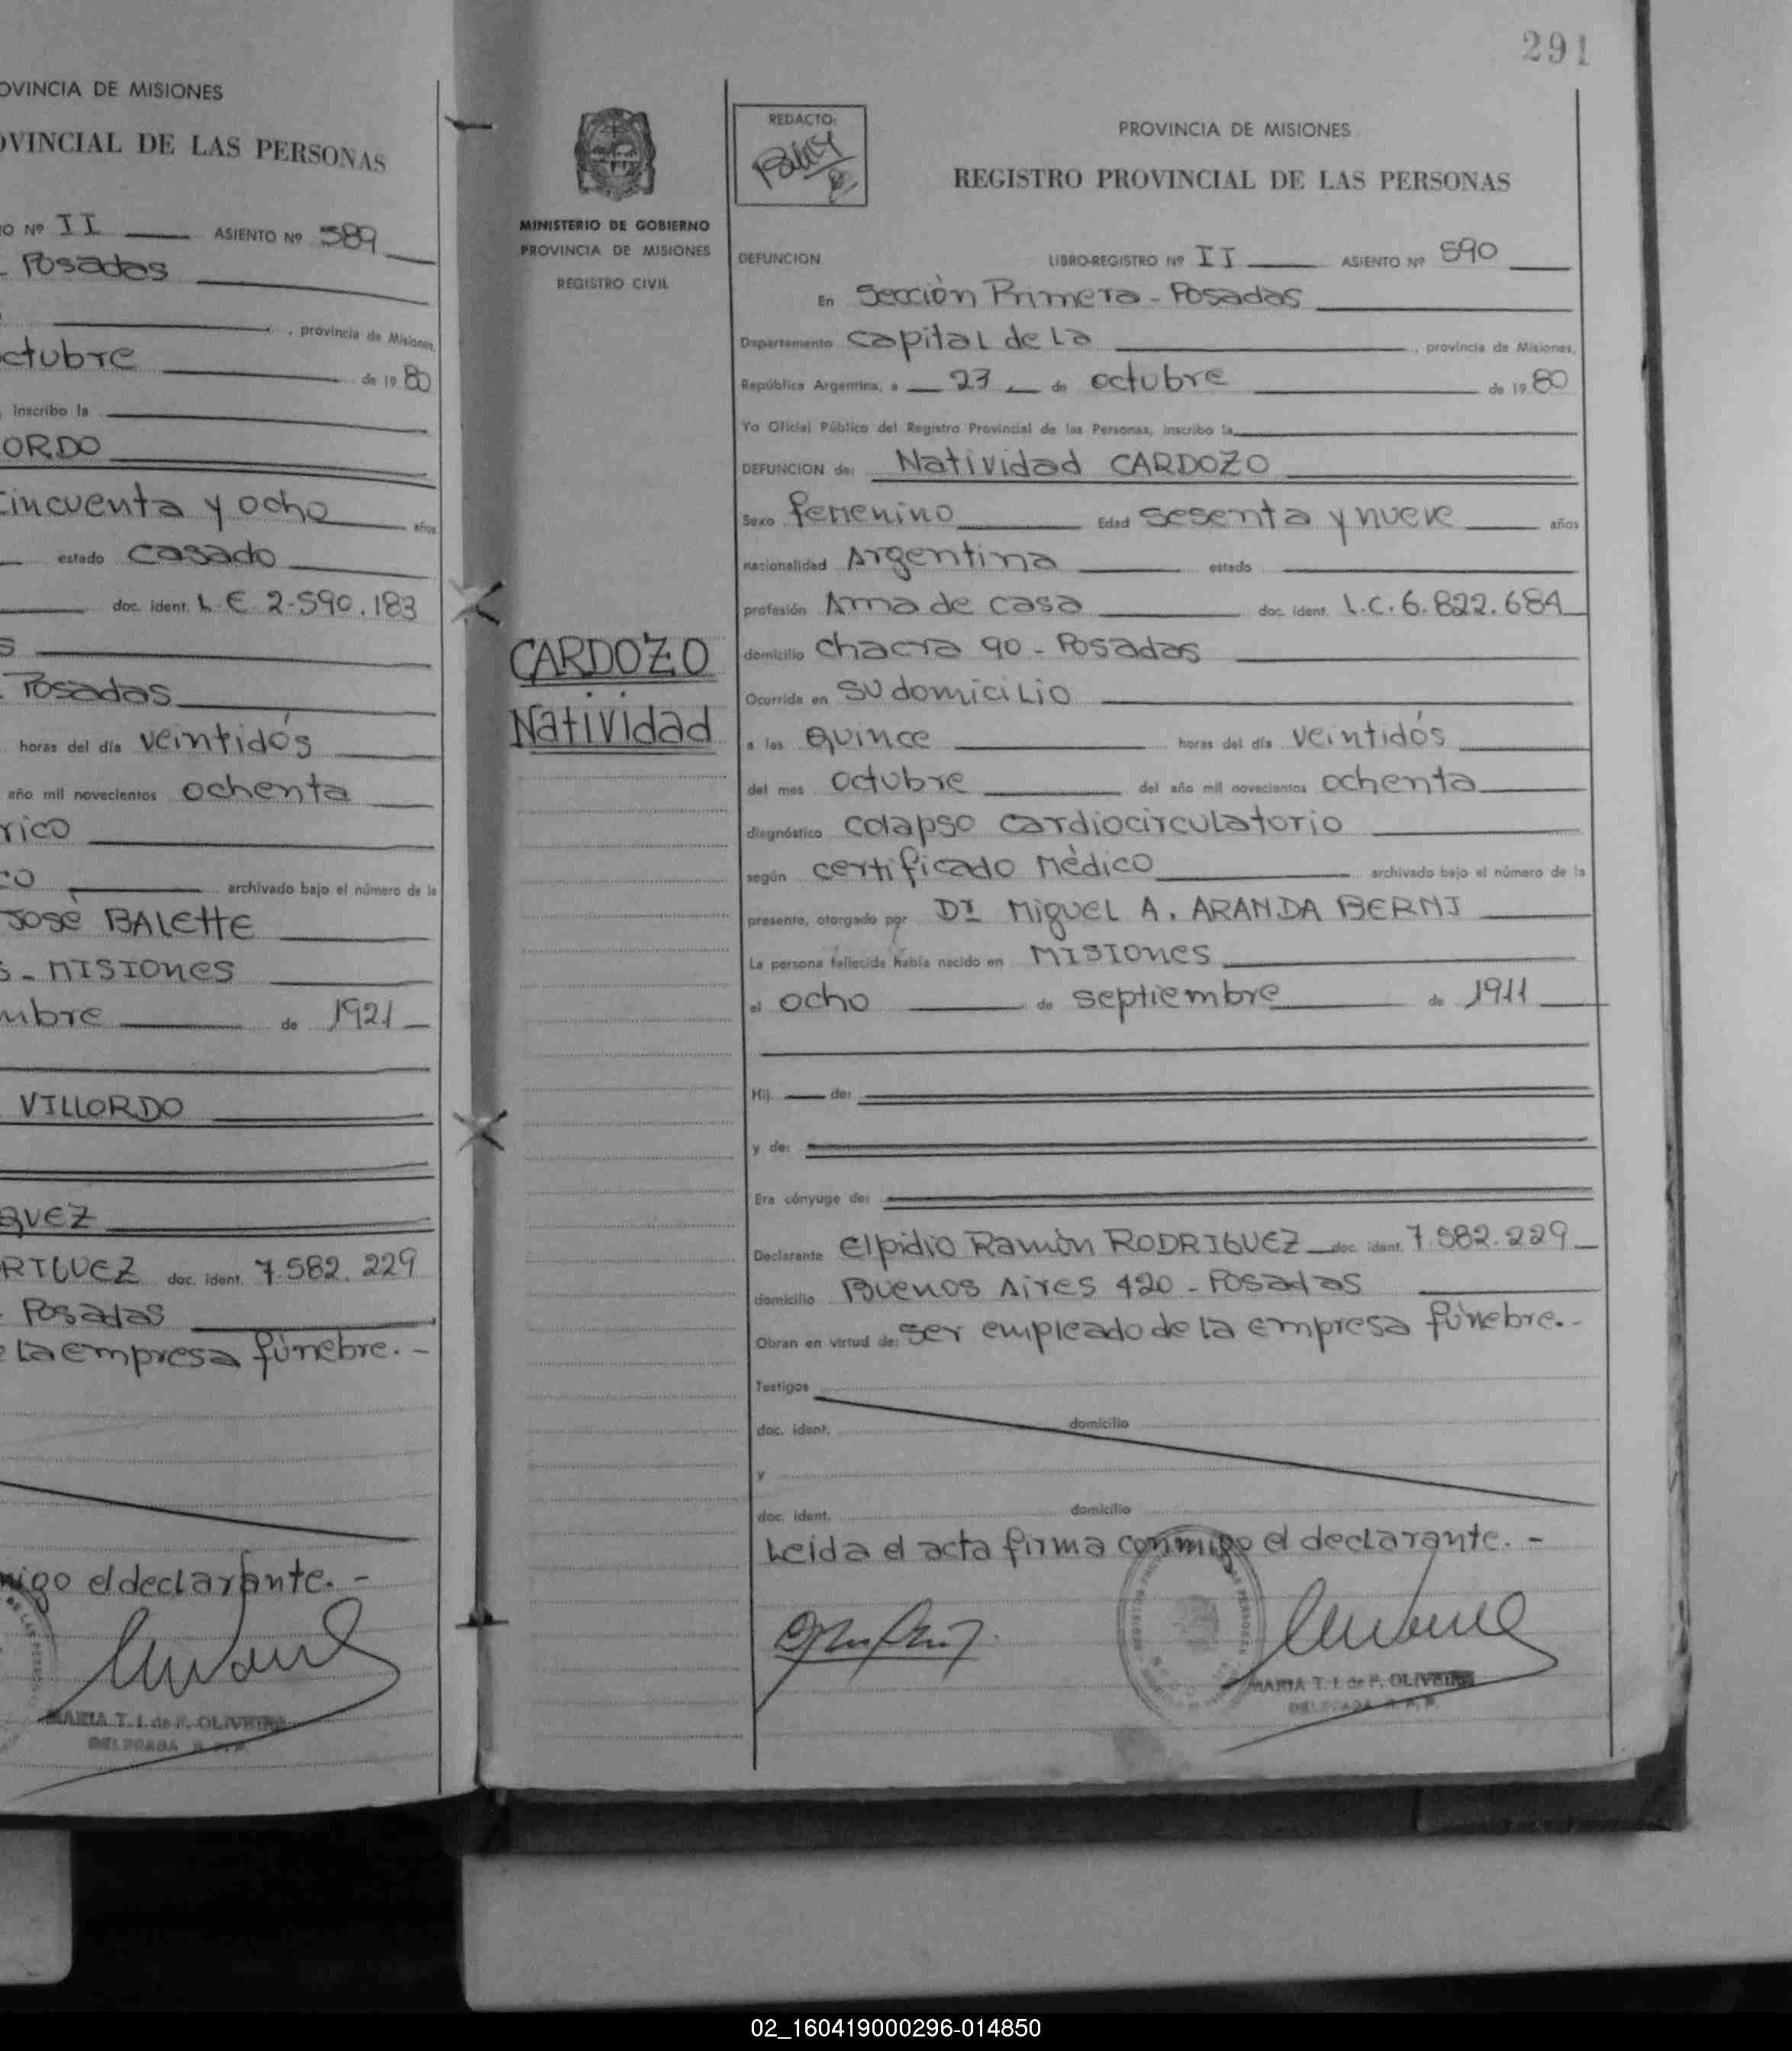 OVINCIA DE MISIONES
OVINCIAL DE LAS PERSONAS
O Nº II ASIENTO Nº 589
Posadas
, provincia de Misiones,
ctubre de 19 80
inscribo la
ORDO
cincuenta y ocho años
estado casado
doc. ident. L E 2-590.183
s
Posadas
horas del día veintidós
año mil novecientos ochenta
rico
co archivado bajo el número de la
José BALETTE
s - MISIONES
mbre de 1921
VILLORDO
QUEZ
RIGUEZ doc. ident. 7.582.229
- Posadas
e la empresa fúnebre. -
migo el declarante. -
MARIA T. I. de F. OLIVEIRA
DELEGADA R. P. P.
291
MINISTERIO DE GOBIERNO
PROVINCIA DE MISIONES
REGISTRO CIVIL
CARDOZO
Natividad
REDACTO:
PROVINCIA DE MISIONES
REGISTRO PROVINCIAL DE LAS PERSONAS
DEFUNCION LIBRO-REGISTRO Nº II ASIENTO Nº 590
En Sección Primera - Posadas
Departamento Capital de La , provincia de Misiones,
República Argentina, a 23 de octubre de 19 80
Yo Oficial Público del Registro Provincial de las Personas, inscribo la
DEFUNCION de: Natividad CARDOZO
Sexo femenino Edad sesenta y nueve años
nacionalidad Argentina estado
profesión Ama de casa doc. ident. L.C. 6.822.684
domicilio chacra 90 - Posadas
Ocurrida en su domicilio
a las quince horas del día veintidós
del mes octubre del año mil novecientos ochenta
diagnóstico colapso cardiocirculatorio
según certificado médico archivado bajo el número de la
presente, otorgado por Dr Miguel A. ARANDA BERNI
La persona fallecida había nacido en MISIONES
el ocho de septiembre de 1911
Hij de:
y de:
Era cónyuge de:
Declarante Elpidio Ramón RODRIGUEZ doc. ident. 7.582.229
domicilio Buenos Aires 420 - Posadas
Obran en virtud de: ser empleado de la empresa fúnebre. -
Testigos
doc. ident. domicilio
y
doc. ident. domicilio
Leida el acta firma conmigo el declarante. -
MARIA T. I. de F. OLIVEIRA
DELEGADA R. P. P.
02_160419000296-014850